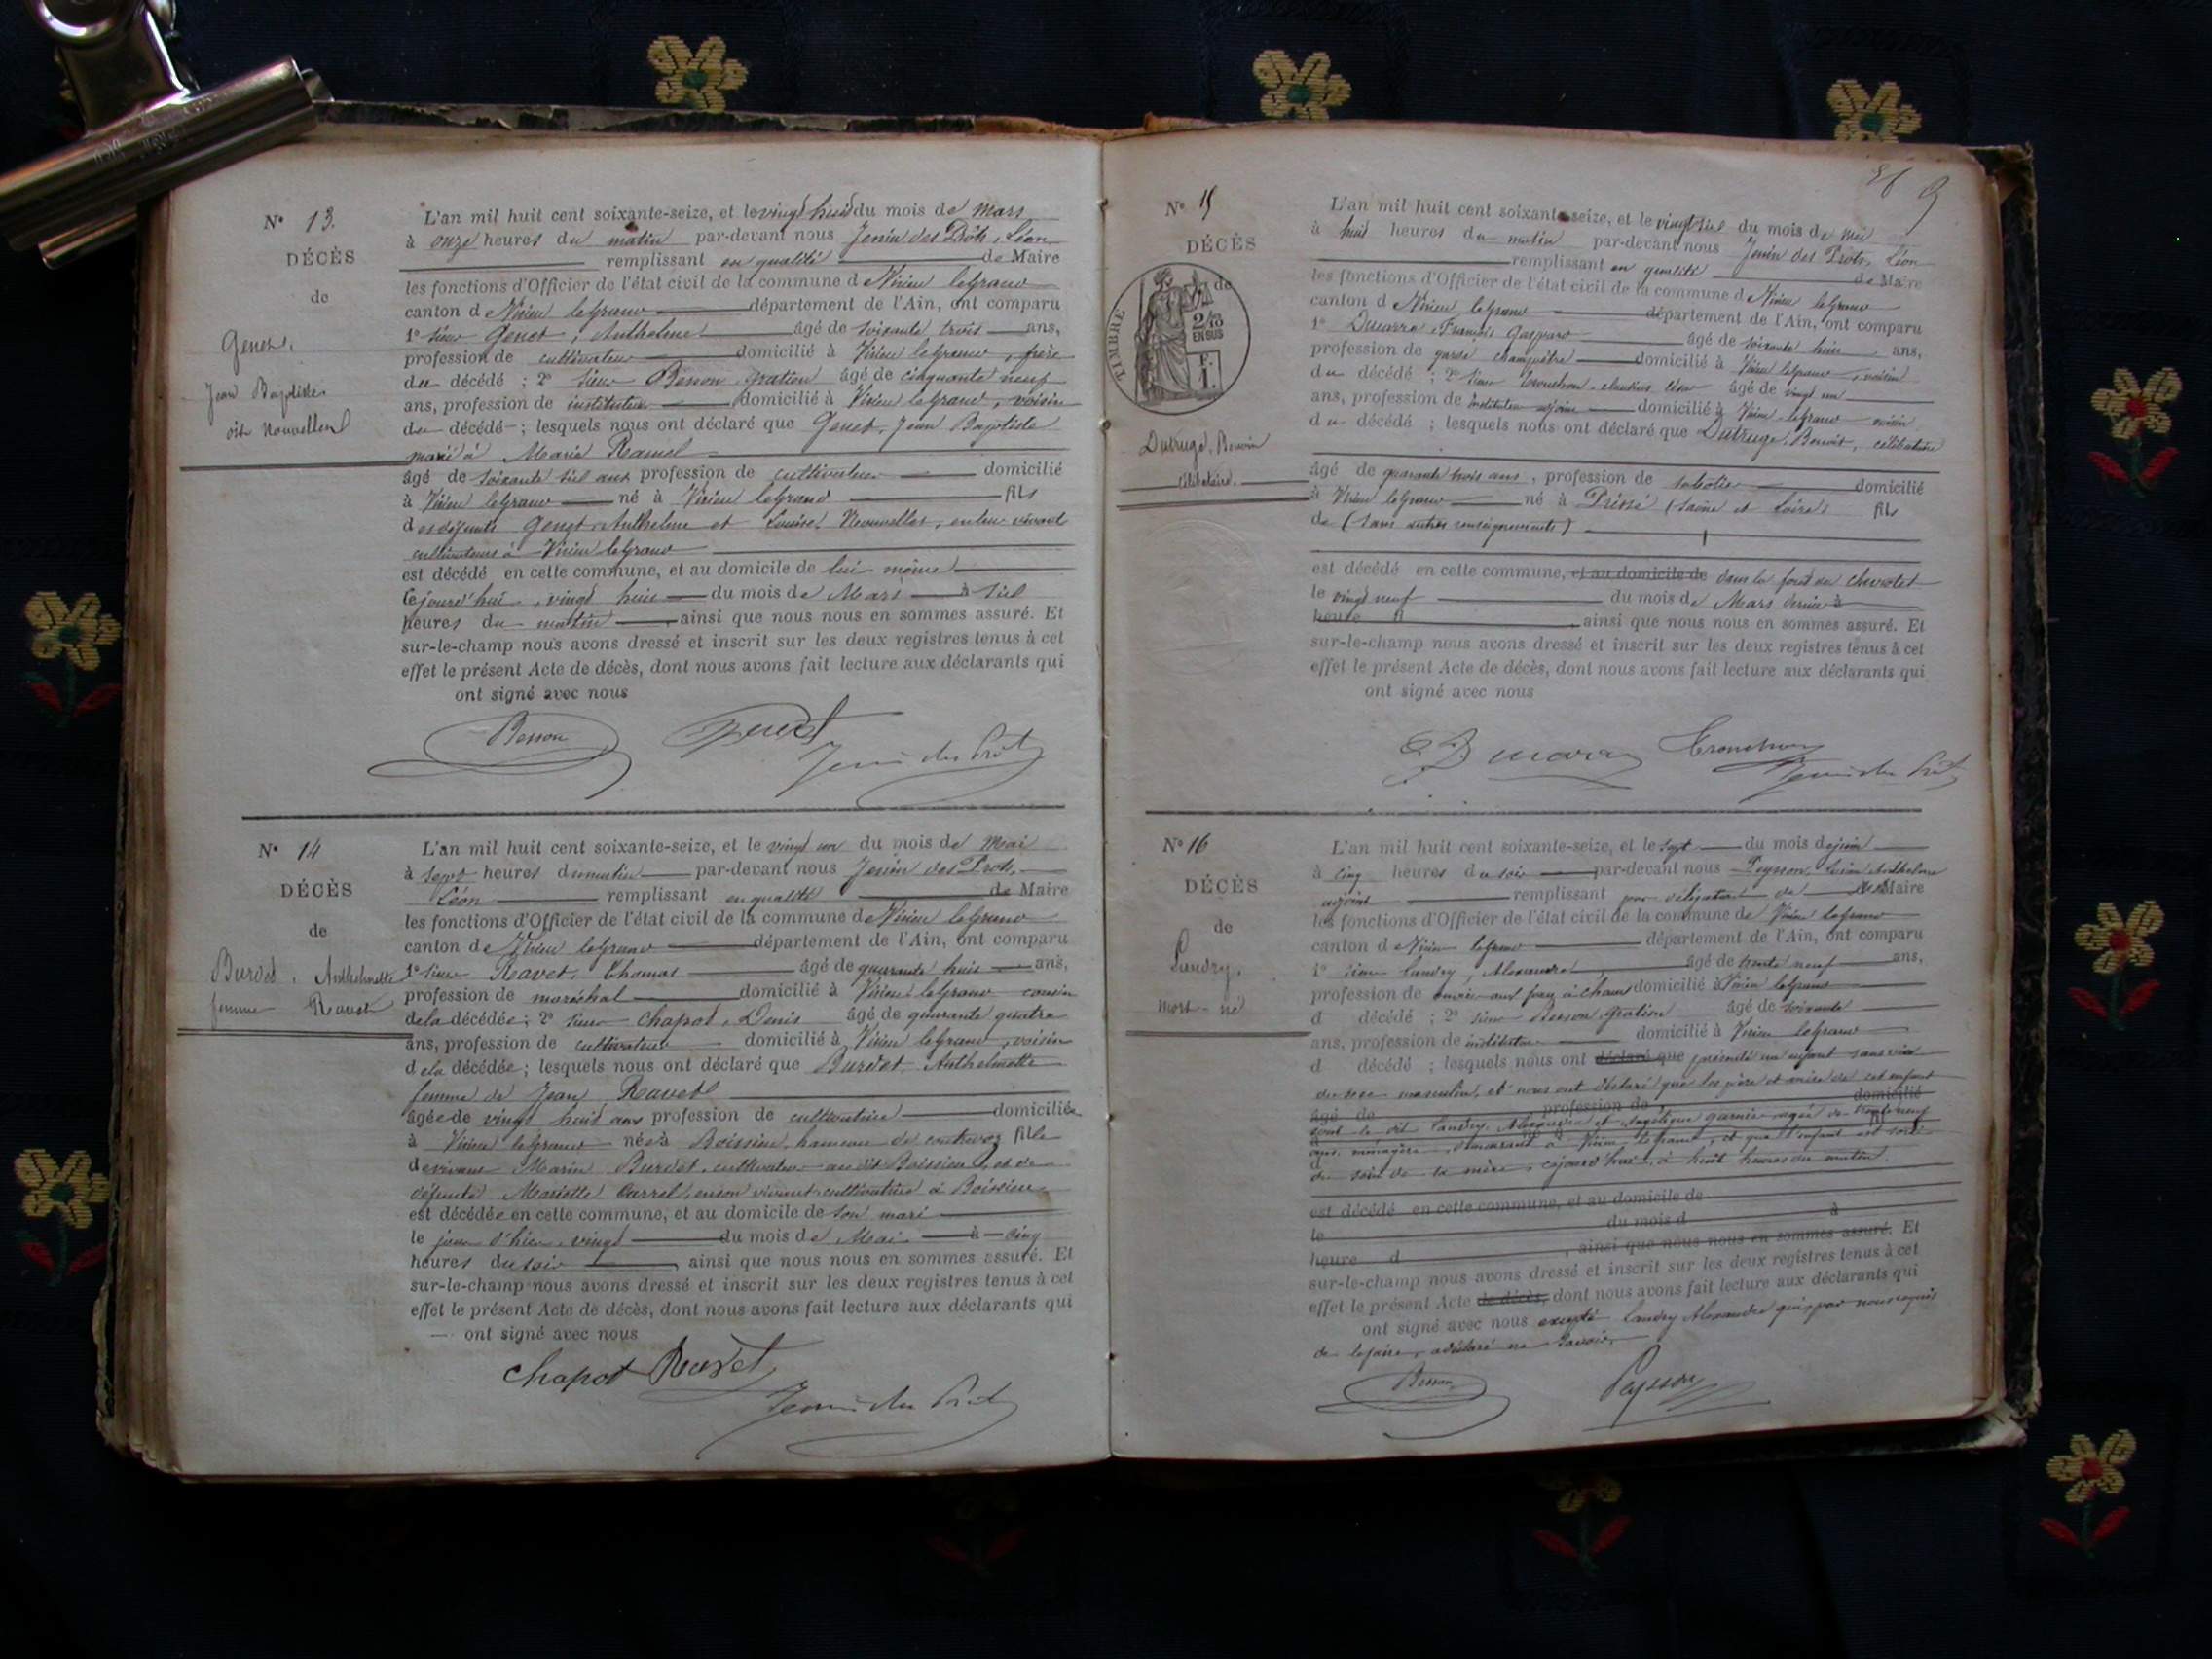 N° 13.
DÉCÈS
de
Genet,
Jean Baptiste
L'an mil huit cent soixante-seize, et le vingt huit du mois de Mars
à onze heures du matin par-devant nous Jenin des Prôts, Léon
remplissant en qualité de Maire
les fonctions d'Officier de l'état civil de la commune de Virieu le grand
canton de Virieu le grand département de l'Ain, ont comparu
1° Sieur Genet, Anthelme âgé de soixante trois ans,
profession de cultivateur domicilié à Virieu le grand, frère
du décédé ; 2° Sieur Besson Gratien âgé de cinquante neuf
ans, profession de instituteur domicilié à Virieu le grand, voisin
du décédé ; lesquels nous ont déclaré que Genet, Jean Baptiste
marié à Marie Ramel
âgé de soixante six ans profession de cultivateur domicilié
à Virieu le grand né à Virieu le grand fils
des défunts Genet Anthelme et Louise Nouvellet, en leur vivant
cultivateurs à Virieu le grand
est décédé en cette commune, et au domicile de lui même
le jourd'hui, vingt huit du mois de Mars à six
heures du matin ainsi que nous nous en sommes assuré. Et
sur-le-champ nous avons dressé et inscrit sur les deux registres tenus à cet
effet le présent Acte de décès, dont nous avons fait lecture aux déclarants qui
ont signé avec nous
Besson Genet
Jenin des Prôts
N° 14
DÉCÈS
de
Burdet, Anthelmette
femme Ravet
L'an mil huit cent soixante-seize, et le vingt un du mois de Mai
à sept heures du matin par-devant nous Jenin des Prôts,
Léon remplissant en qualité de Maire
les fonctions d'Officier de l'état civil de la commune de Virieu le grand
canton de Virieu le grand département de l'Ain, ont comparu
1° Sieur Ravet, Thomas âgé de quarante huit ans,
profession de maréchal domicilié à Virieu le grand cousin
de la décédée ; 2° Sieur Chapot, Denis âgé de quarante quatre
ans, profession de cultivateur domicilié à Virieu le grand, voisin
de la décédée ; lesquels nous ont déclaré que Burdet, Anthelmette
femme de Jean Ravet
âgée de vingt huit ans profession de cultivatrice domiciliée
à Virieu le grand née à Boissieu, hameau de Contrevoz fille
de vivant Marin Burdet, cultivateur au dit Boissieu, et de
défunte Mariette Carrel en son vivant cultivatrice à Boissieu
est décédée en cette commune, et au domicile de son mari
le jour d'hier vingt du mois de Mai à cinq
heures du soir ainsi que nous nous en sommes assuré. Et
sur-le-champ nous avons dressé et inscrit sur les deux registres tenus à cet
effet le présent Acte de décès, dont nous avons fait lecture aux déclarants qui
ont signé avec nous
Chapot Ravet
Jenin des Prôts
9
N° 15
DÉCÈS
de
TIMBRE
2/10
EN SUS
F.
1.
Dutruge, Benoit
célibataire.
L'an mil huit cent soixante-seize, et le vingt six du mois de Mai
à huit heures du matin par-devant nous Jenin des Prôts, Léon
remplissant en qualité de Maire
les fonctions d'Officier de l'état civil de la commune de Virieu le grand
canton de Virieu le grand département de l'Ain, ont comparu
1° Ducarre, François Gaspard âgé de soixante huit ans,
profession de garde champêtre domicilié à Virieu le grand, voisin
du décédé ; 2° Sieur Tronchon, Claudius Léon âgé de vingt un
ans, profession de instituteur adjoint domicilié à Virieu le grand voisin
du décédé ; lesquels nous ont déclaré que Dutruge, Benoit, célibataire
âgé de quarante trois ans, profession de sabotier domicilié
à Virieu le grand né à Prissé (Saône et Loire) fils
de (sans autres renseignements)
est décédé en cette commune, et au domicile de dans la forêt de
le vingt neuf du mois de Mars dernier à
heure ainsi que nous nous en sommes assuré. Et
sur-le-champ nous avons dressé et inscrit sur les deux registres tenus à cet
effet le présent Acte de décès, dont nous avons fait lecture aux déclarants qui
ont signé avec nous
Tronchon
Jenin des Prôts
N° 16
DÉCÈS
de
Landry,
mort-né
L'an mil huit cent soixante-seize, et le sept du mois de juin
à cinq heures du soir par-devant nous Peysson, Anthelme
adjoint remplissant par délégation de Maire
les fonctions d'Officier de l'état civil de la commune de Virieu le grand
canton de Virieu le grand département de l'Ain, ont comparu
1° Sieur Landry, Alexandre âgé de trente neuf ans,
profession de ouvrier aux fours à chaux domicilié à Virieu le grand
d décédé ; 2° Sieur Besson, Gratien âgé de soixante
ans, profession de instituteur domicilié à Virieu le grand
d décédé ; lesquels nous ont déclaré que présenté un enfant sans vie
du sexe masculin, et nous ont déclaré que les père et mère de cet enfant
âgé de profession de domicilié
sont le dit Landry, Alexandre et Angélique Garnier âgée de
ans, ménagère, demeurant à Virieu le grand, et que l'enfant est sorti
du sein de la mère, cejourd'hui, à huit heures du matin.
est décédé en cette commune, et au domicile de
le du mois d à
heure d , ainsi que nous nous en sommes assuré. Et
sur-le-champ nous avons dressé et inscrit sur les deux registres tenus à cet
effet le présent Acte de décès, dont nous avons fait lecture aux déclarants qui
ont signé avec nous excepté Landry Alexandre qui, par nous requis
de le faire, a déclaré ne savoir.
Besson Peysson